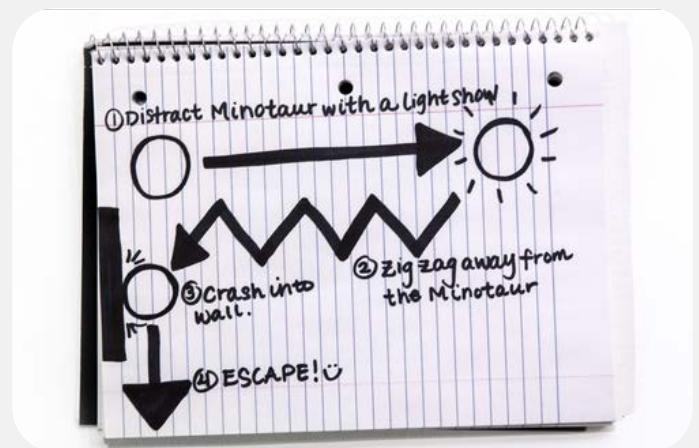 ① Distract Minotaur with a light show
② Zig zag away from
the Minotaur
③ Crash into
wall.
④ ESCAPE! :)